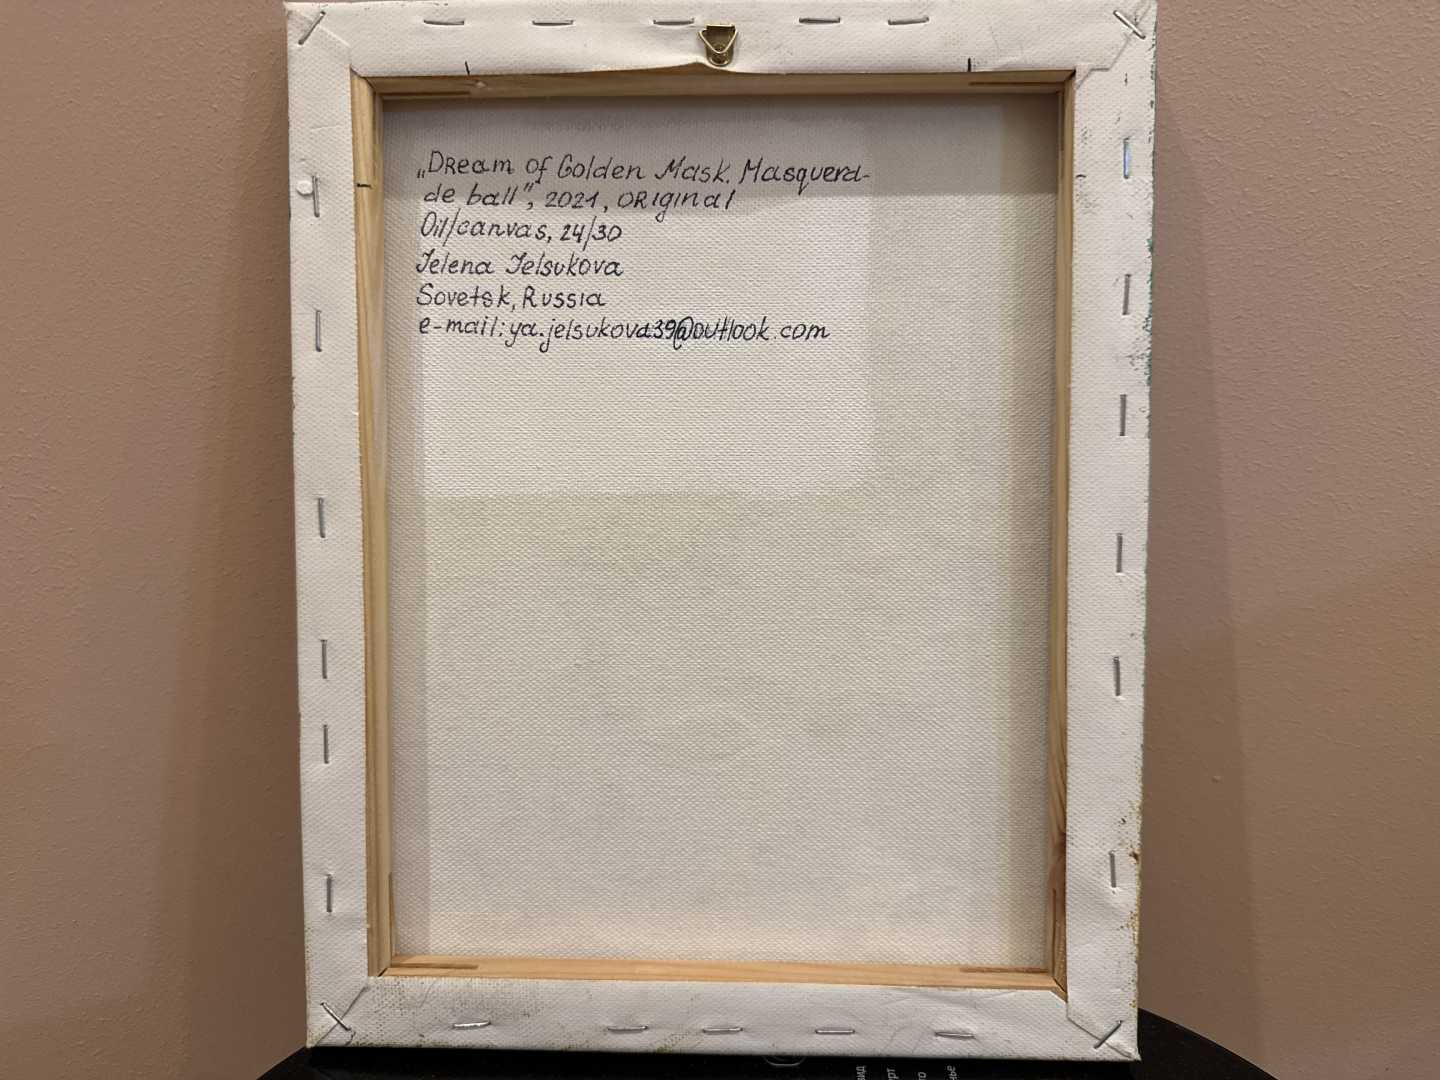 „Dream of Golden Mask. Masquera-
de ball", 2021, original
Oil/canvas, 24/30
Jelena Jelsukova
Sovetsk, Russia
e-mail: ya.jelsukova39@outlook.com